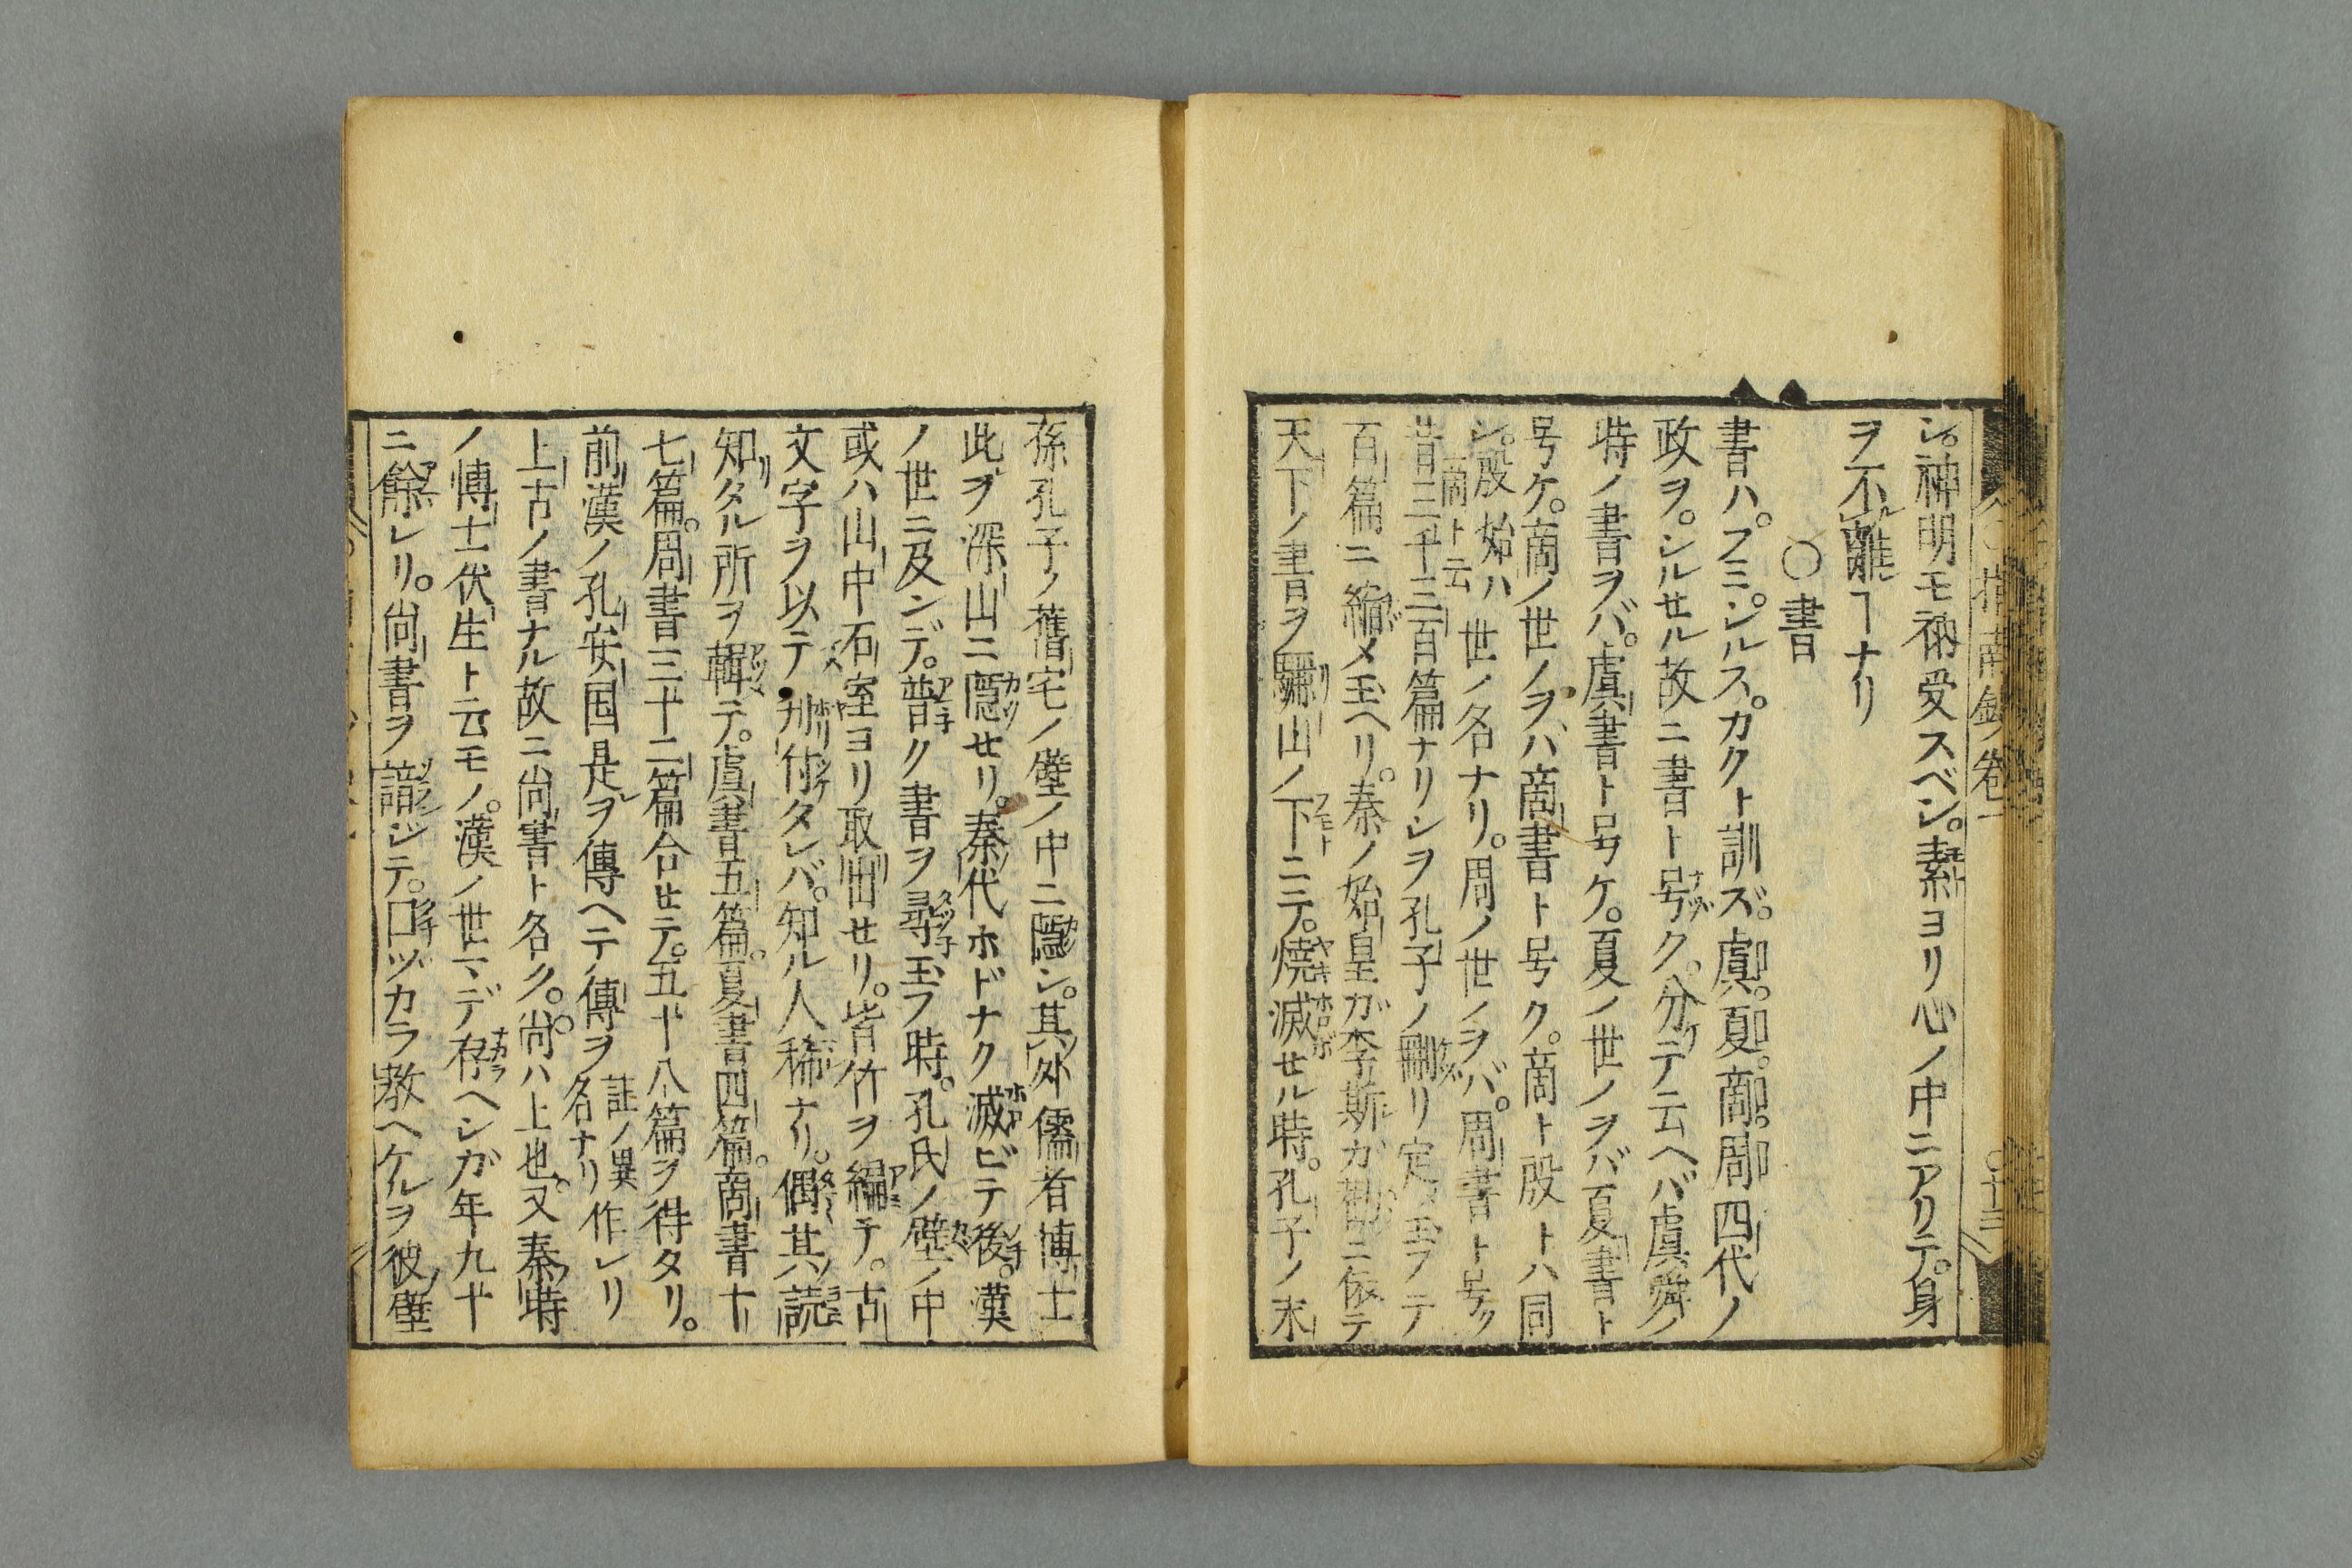 シ。神明モ納受スベシ。素ヨリ心ノ中ニアリテ。身
ヲ不離ヿナリ
〇書
書ハ。フミ。シルス。カクト訓ズ。虞。夏。商。周四代ノ
政ヲ。シルセル故ニ書ト号ク。分テ云ヘバ虞舜ノ
時ノ書ヲバ。虞書ト号ケ。夏ノ世ノヲバ夏書ト
号ケ。商ノ世ノヲバ商書ト号ク。商ト殷トハ同
シ。殷始ハ商ト云世ノ名ナリ。周ノ世ノヲバ。周書ト号ク
昔三千三百篇ナリシヲ孔子ノ刪リ定メ玉フテ
百篇ニ縮メ玉ヘリ。秦ノ始皇ガ李斯ガ勧ニ依テ
天下ノ書ヲ驪山ノ下ニテ。焼滅セル時。孔子ノ末
孫孔子ノ舊宅ノ壁ノ中ニ隠シ。其外儒者博士
此ヲ深山ニ隠セリ。秦代ホドナク滅ビテ後。漢
ノ世ニ及ンデ。普ク書ヲ尋玉フ時。孔氏ノ壁ノ中
或ハ山中石室ヨリ取出セリ。皆竹ヲ編テ。古
文字ヲ以テ刊付タレバ。知ル人稀ナリ。偶其読
知タル所ヲ輯テ。虞書五篇。夏書四篇。商書十
七篇。周書三十二篇合セテ。五十八篇ヲ得タリ。
前漢ノ孔安国是ヲ傳ヘテ傳ヲ註ノ異名ナリ作レリ
上古ノ書ナル故ニ尚書ト名ク。尚ハ上也。又秦時
ノ博士伏生ト云モノ。漢ノ世マデ存ヘシガ年九十
ニ餘レリ。尚書ヲ諳ジテ。口ヅカラ教ヘケルヲ彼壁